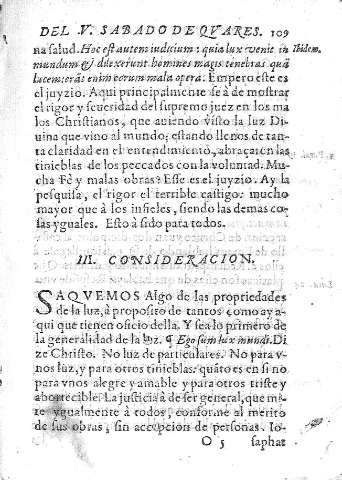 DEL .V. SABADO DE QVARES. 109
na salud. Hoc est autem iudicium: quia lux venit in Ibidem.
mundum & dilexerunt homines magis tenebras quã
lucem: erãt enim eorum mala opera. Empero este es
el juyzio. Aqui principalmente se à de mostrar
el rigor y seueridad del supremo juez en los ma
los Christianos, que auiendo visto la luz Di
uina que vino al mundo; estando llenos de tan-
ta claridad en el entendimiento, abraçaron las
tinieblas de los peccados con la voluntad. Mu-
cha Fè y malas obras? Esse es el juyzio. Ay la
pesquisa, el rigor el terrible castigo: mucho
mayor que à los infieles, siendo las demas co-
sas yguales. Esto à sido para todos.
III. CONSIDERACION.
SAQVEMOS Algo de las propriedades
de la luz, à proposito de tantos como ay a-
qui que tienen oficio della. Y sea lo primero de
la generalidad de la luz. ¶ Ego sum lux mundi. Di
ze Christo. No luz de particulares. No para v-
nos luz, y para otros tinieblas: quãto es en si no
para vnos alegre y amable y para otros triste y
aborrecible. La justicia à de ser general, que mi-
re ygualmente à todos, conforme al merito
de sus obras, sin accepcion de personas. Io-
O 5 saphat